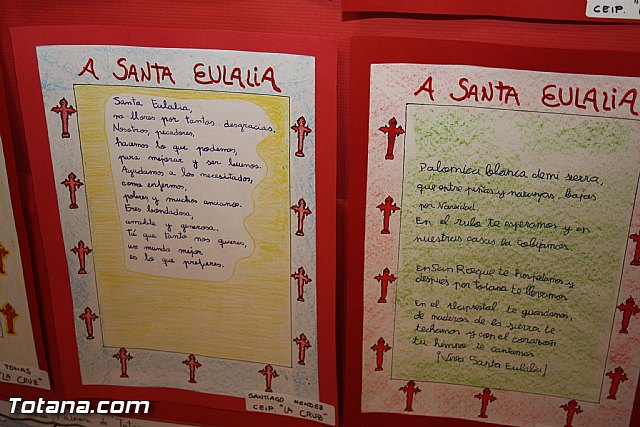 CEIP. "LA C
A SANTA EULALIA
Santa Eulalia,
no llores por tantas desgracias,
Nosotros, pecadores,
hacemos lo que podemos,
para mejorar y ser buenos.
Ayudamos a los necesitados,
como enfermos,
pobres y muchos ancianos.
Eres bondadosa,
amable y generosa.
Tú que tanto nos quieres,
un mundo mejor
es lo que prefieres.
SANTIAGO MENDEZ
CEIP. "LA CRUZ"
A SANTA EULALIA
Palomica blanca de mi sierra,
que entre peñas y naranjas, bajas
por Navidad.
En el rulo te esperamos y en
nuestras casas te cobijamos.
En San Roque te hospedamos y
después por totana te llevamos
En el altar te guardamos,
de maderas de la sierra te
techamos y con el corazón
tu himno te cantamos
¡Viva Santa Eulalia!
TOMAS
"LA CRUZ"
Totana.com